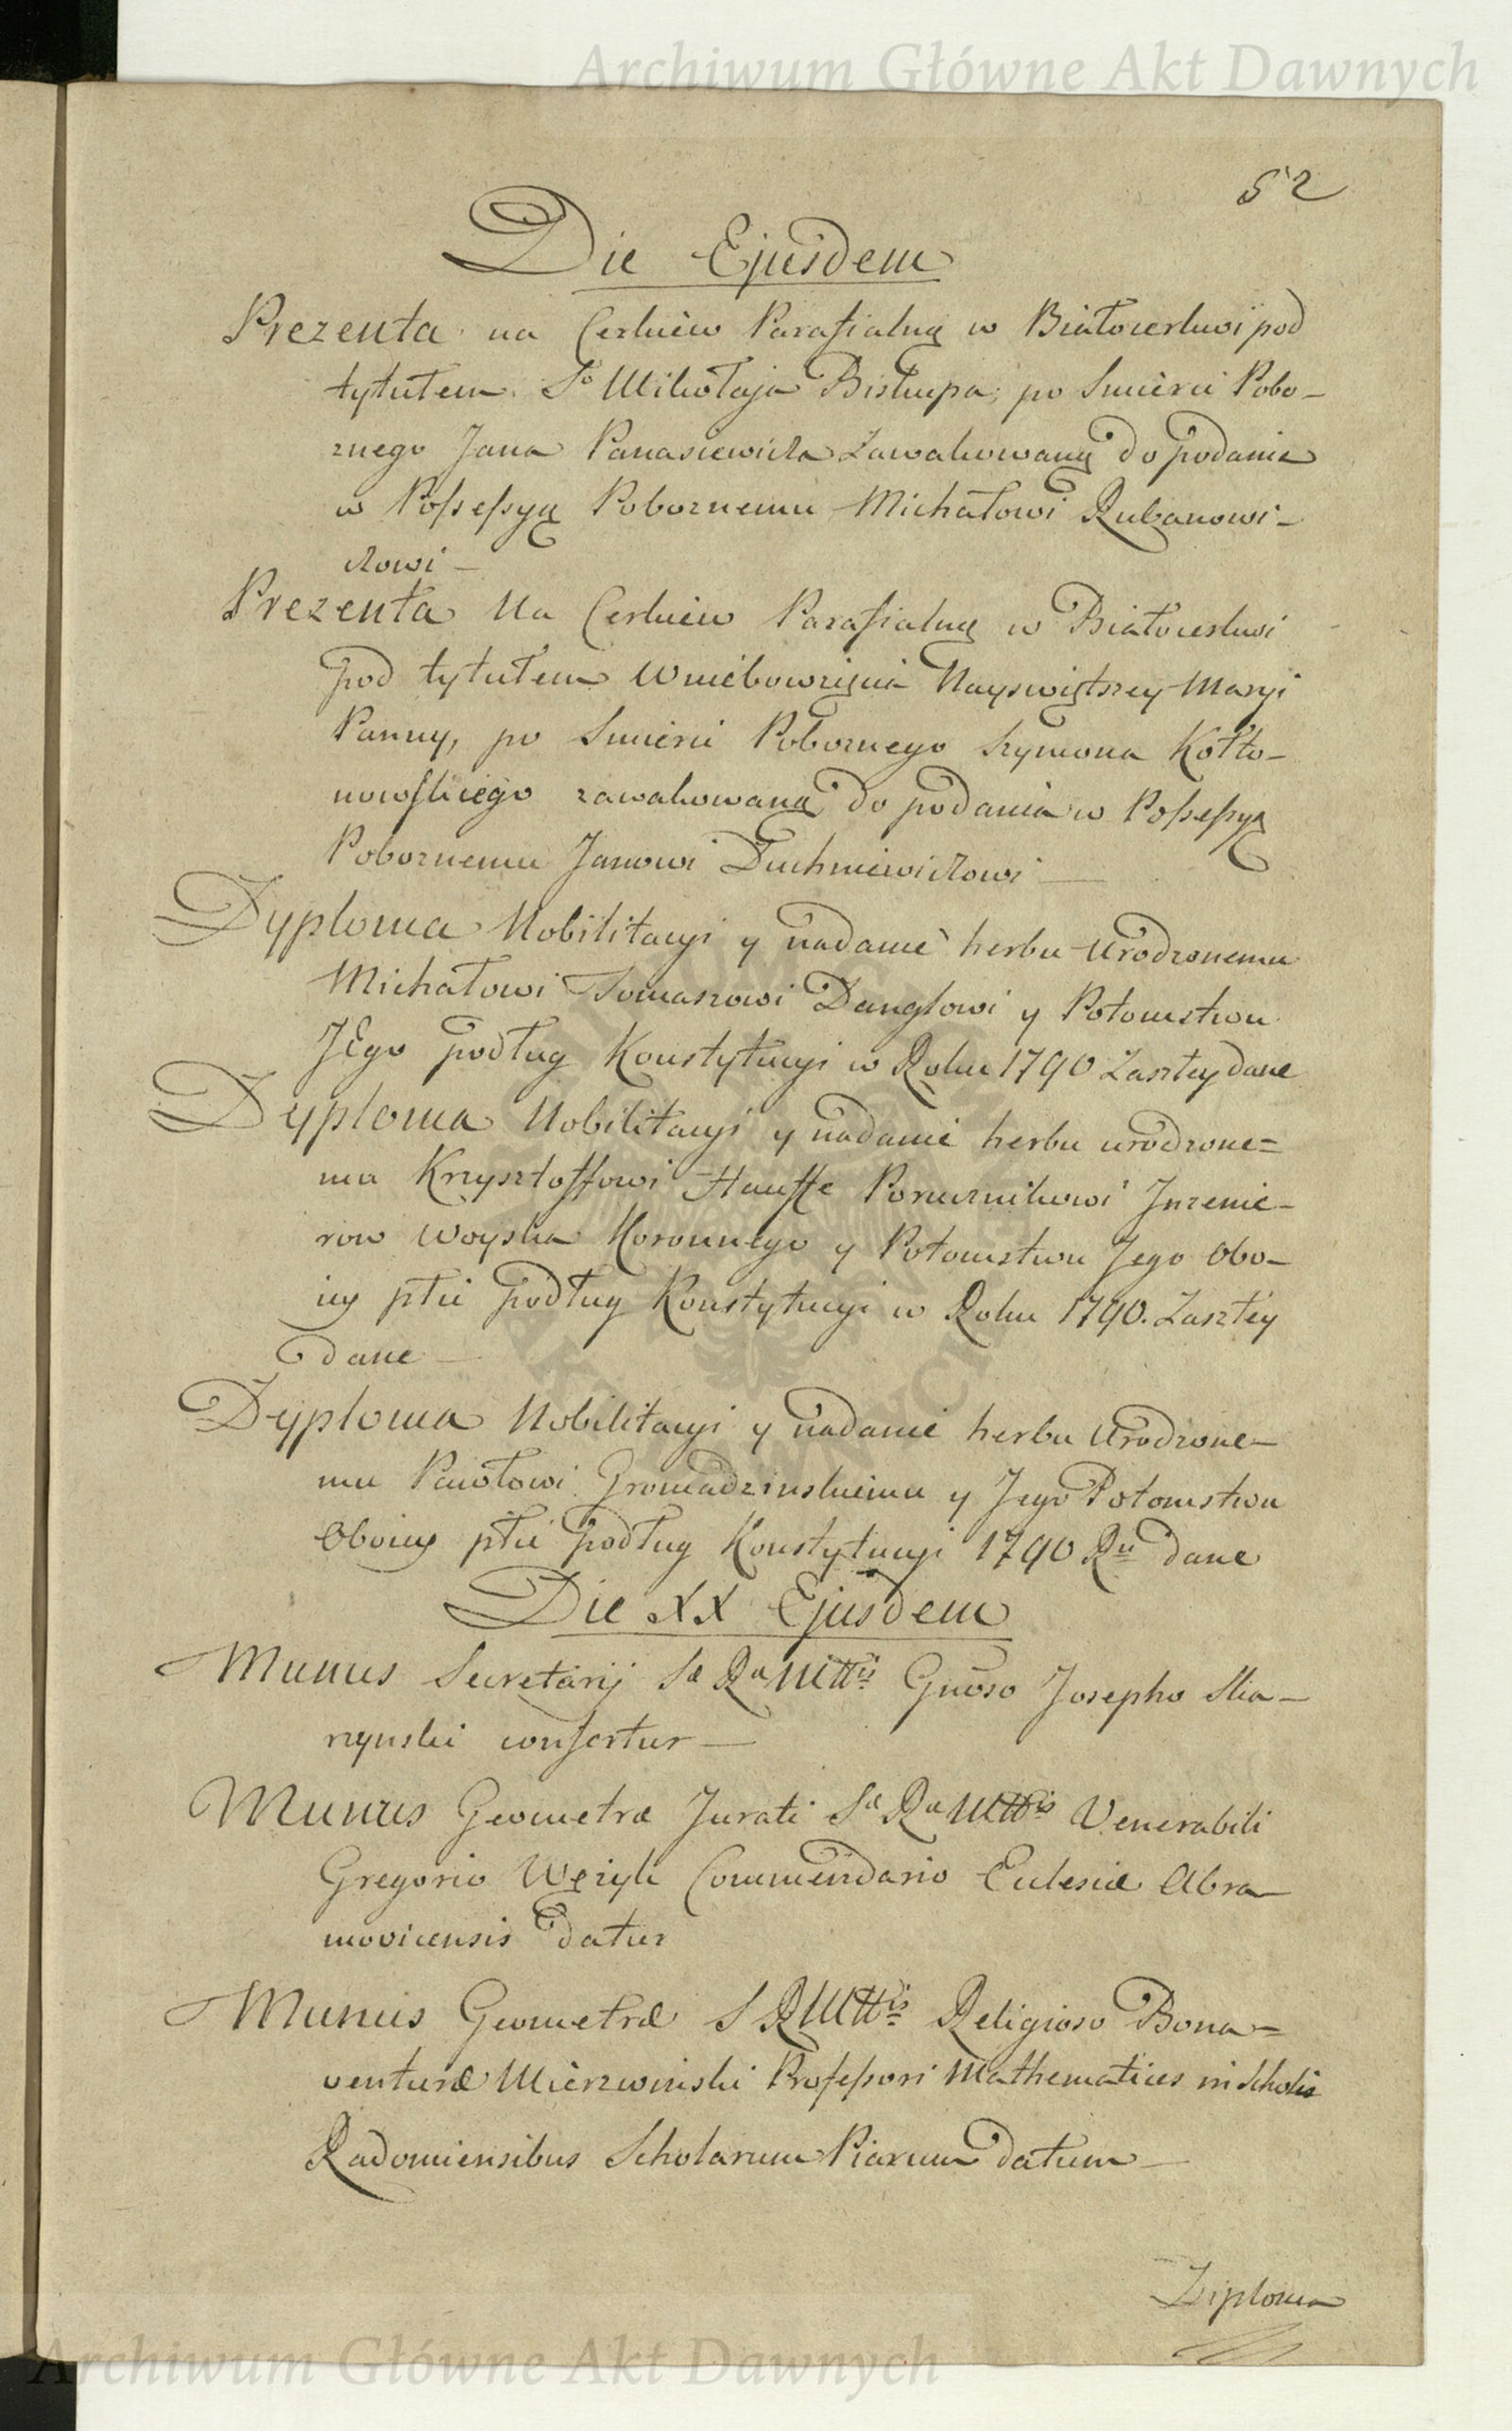 Archiwum Główne Akt Dawnych
52
Die Ejusdem
Prezenta na Cerkiew Parafialną w Białocerkwi pod
tytułem Sº Mikołaja Biskupa, po Smierci Pobo-
znego Jana Panasiewicza Zawakowaną do podania
w Possessyą Poboznemu Michałowi Rubanowi-
czowi —
Prezenta Na Cerkiew Parafialną w Białocerkwi
pod tytułem Wniebowzięcia Nayswiętszey Maryi
Panny, po Smierci Poboznego Szymona Kołto-
nowskiego zawakowaną do podania w Possessyą
Poboznemu Janowi Duchniewiczowi —
Dyploma Nobilitacyi y nadanie herbu Urodzonemu
Michałowi Tomaszowi Danglowi y Potomstwu
JEgo podług Konstytucyi w Roku 1790 Zaszłey dane
Dyploma Nobilitacyi y nadanie herbu urodzone=
mu Krzysztoffowi Hauffe Porucznikowi Jnzenie-
row Woyska Koronnego y Potomstwu Jego Obo-
iey płci podług Konstytucyi w Roku 1790. Zaszłey
dane —
Dyploma Nobilitacyi y nadanie herbu Urodzone-
mu Pawołowi Gromadzinskiemu y Jego Potomstwu
Oboiey płci podług Konstytucyi 1790 Ru dane
Die XX Ejusdem
Munus Secretarij Sæ Ræ Mttis Gnoso Josepho Ska-
rzynski confertur —
Munus Geometræ Jurati Sæ Ræ Mttis Venerabili
Gregorio Węzyk Commendario Eclesiæ Abra-
movicensis datur
Munus Geometræ S R Mttis Religioso Bona=
venturæ Mierzwinski Professori Mathematices in Scholis
Radomiensibus Scholarum Piarum datum —
Diploma
Archiwum Główne Akt Dawnych